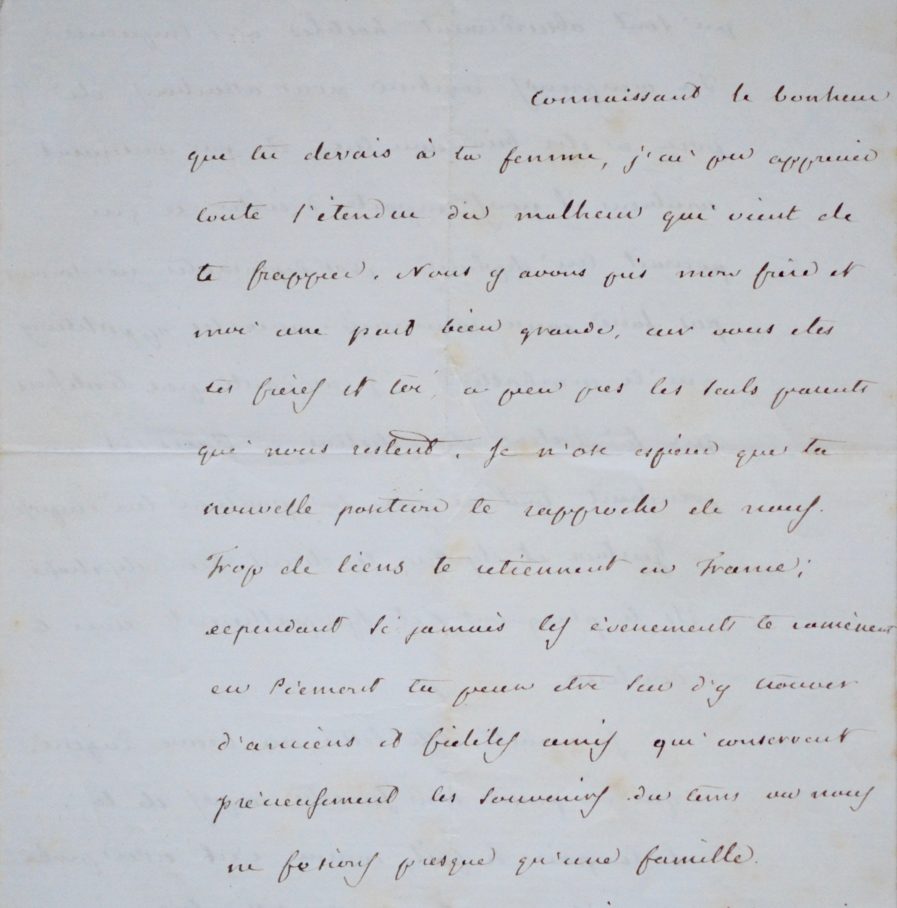 connaissant le bonheur
que tu devais à ta femme, j'ai pu apprecier
toute l'étendue du malheur qui vient de
te frapper. Nous y avons pris mon frère et
moi une part bien grande, car vous etes
tes frères et toi, a peu pres les seuls parents
qui nous restent. Je n'ose espérer que ta
nouvelle position te rapproche de nous.
Trop de liens te retiennent en France;
cependant si jamais les évenements te ramènent
en Piemont tu peux etre sur d'y trouver
d'anciens et fidèles amis qui conservent
précieusement les souvenirs du tems ou nous
ne fesions presque qu'une famille.